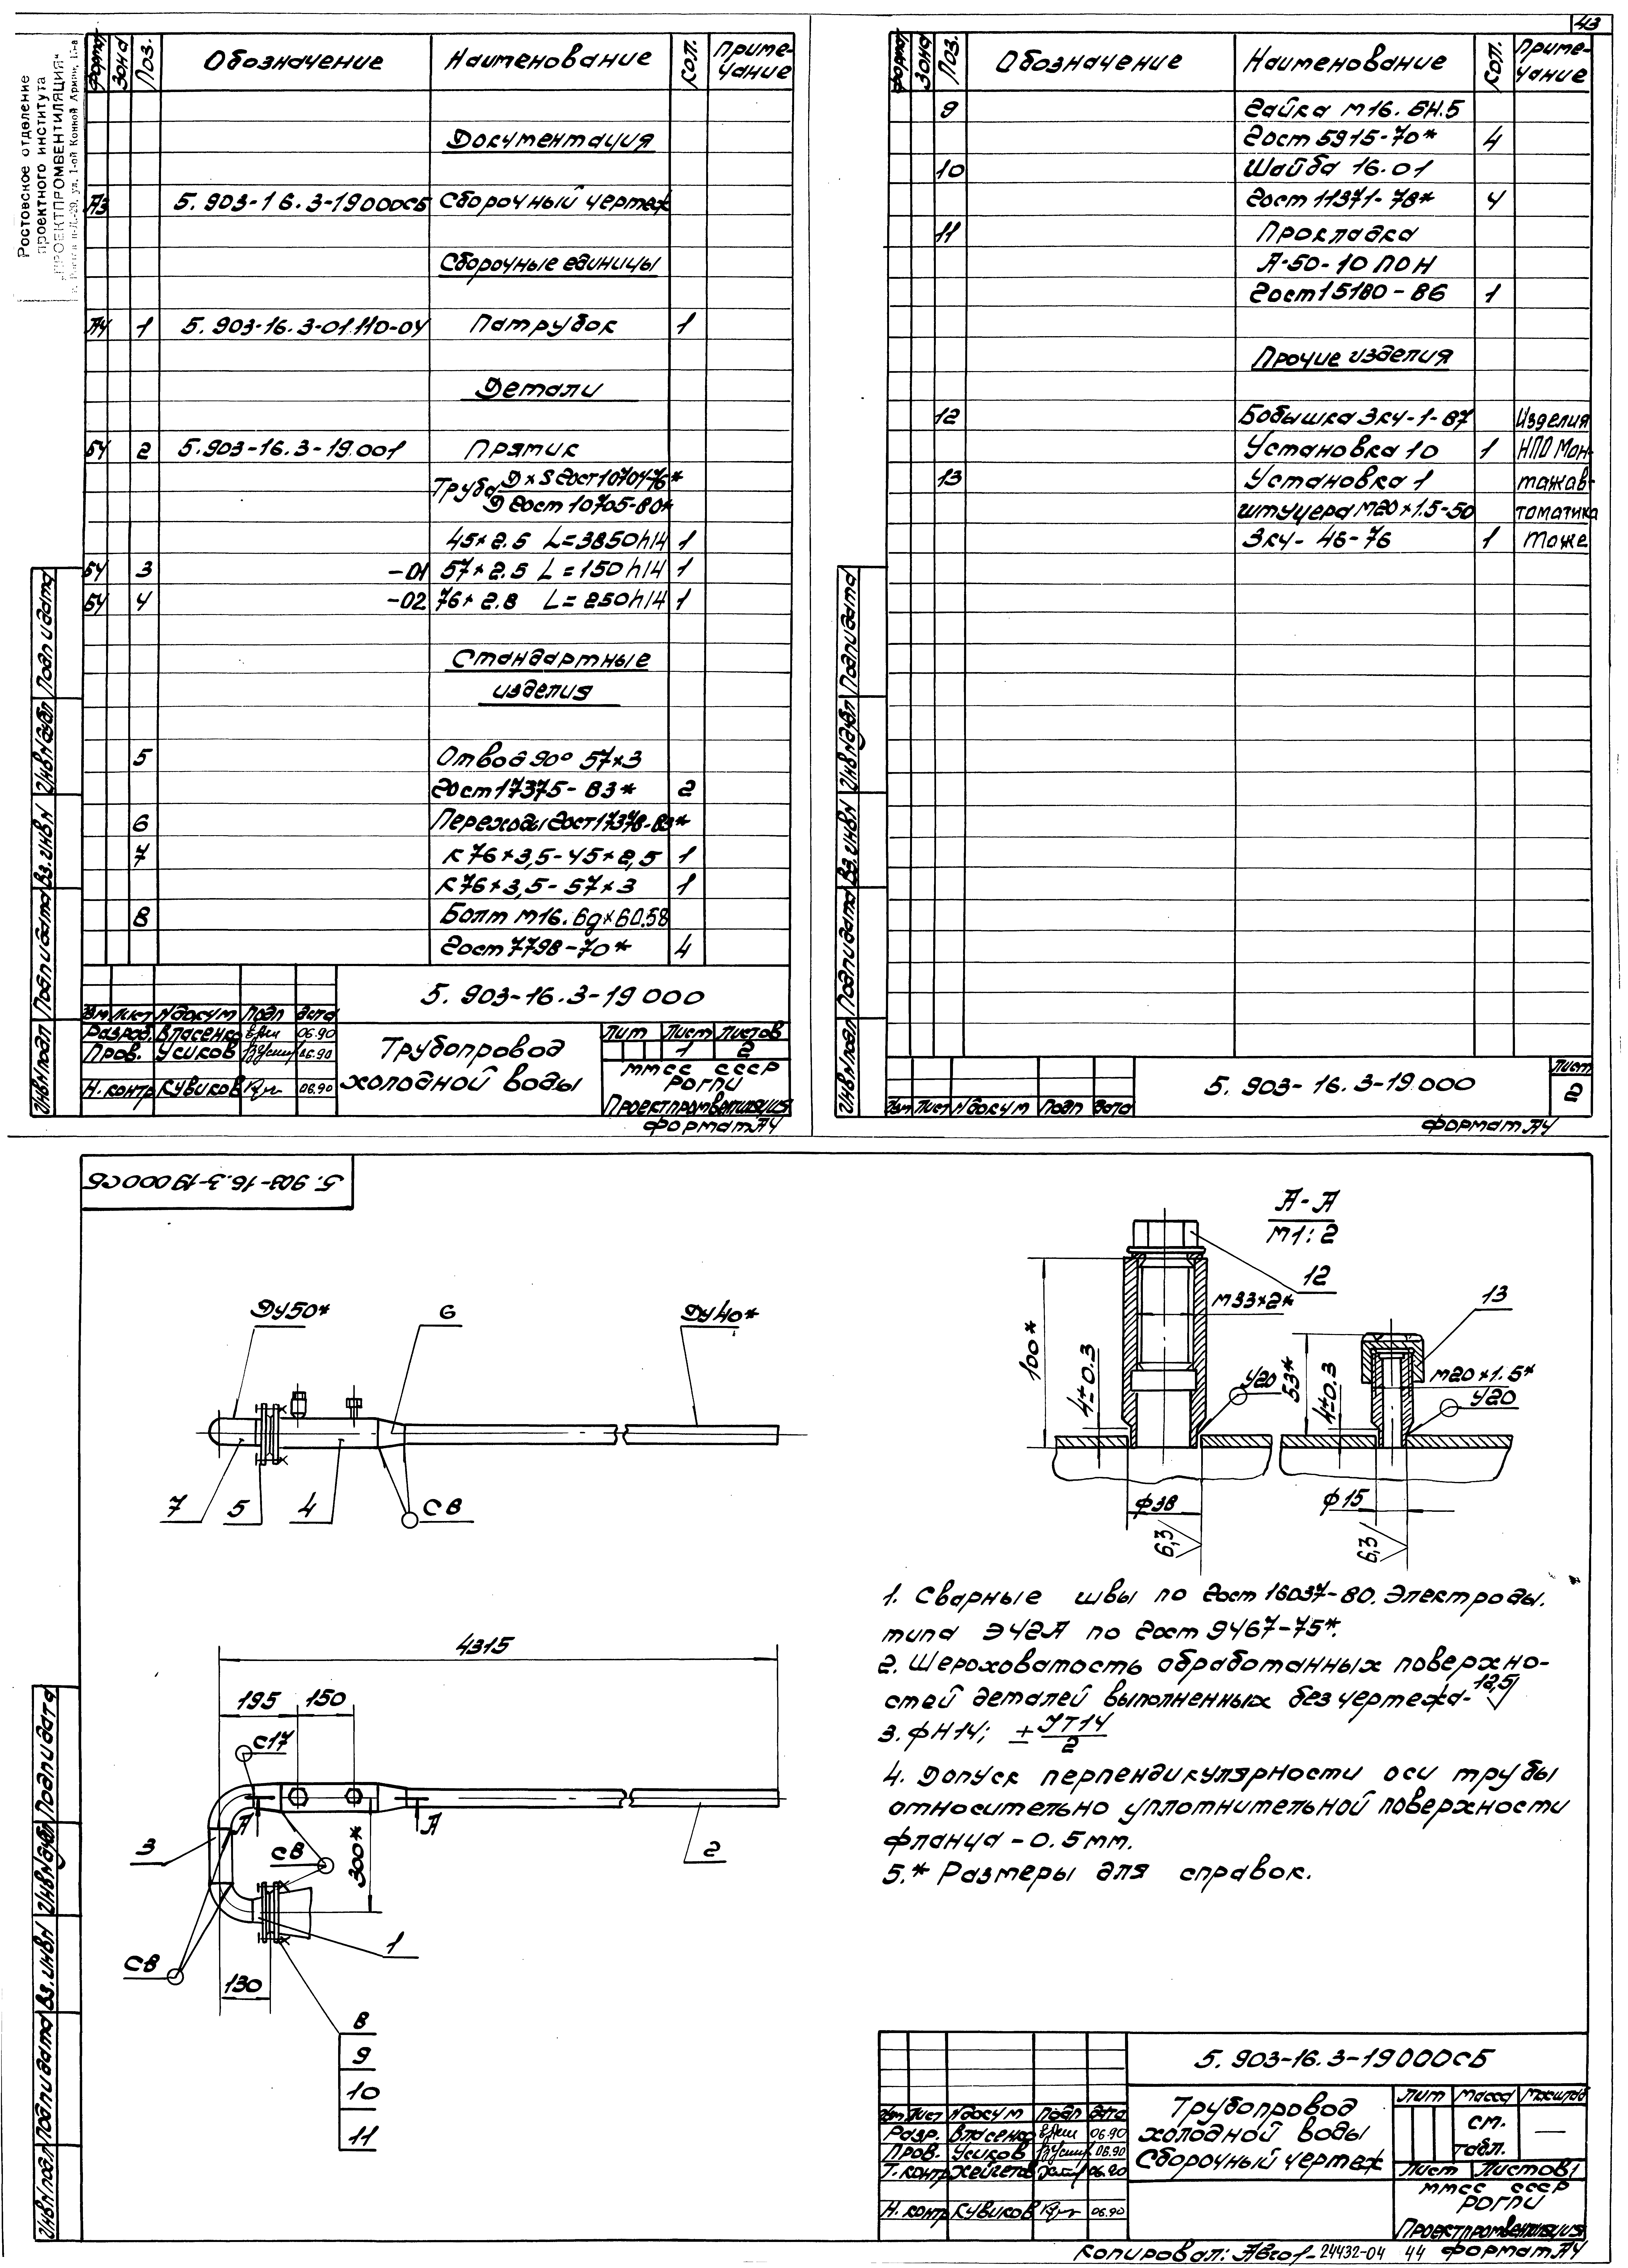 43
Ростовское отделение
проектного института
„ПРОЕКТПРОМВЕНТИЛЯЦИЯ“
Формат Зона Поз. Обозначение Наименование Кол. Приме-
чание
Документация
А3 5.903-16.3-19000СБ Сборочный чертеж
Сборочные единицы
А4 1 5.903-16.3-01.110-04 Патрубок 1
Детали
БЧ 2 5.903-16.3-19.001 Прямик
Труба D×S Гост 10704-76*
Д Гост 10705-80*
45×2.5 L=3850h14 1
БЧ 3 -01 57×2.5 L=150h14 1
БЧ 4 -02 76×2.8 L=250h14 1
Стандартные
изделия
5 Отвод 90° 57×3
Гост 17375-83* 2
6 Переходы Гост 17378-83*
7 К 76×3,5-45×2,5 1
К 76×3,5-57×3 1
8 Болт М16.6g×60.58
Гост 7798-70* 4
5.903-16.3-19 000
Изм Лист N докум Подп Дата
Разраб. Власенко 06.90
Пров. Усиков 06.90
Н.контр Кувиков 06.90
Трубопровод
холодной воды
Лит Лист Листов
1 2
ММСС СССР
РОГПИ
Проектпромвентиляция
Формат А4
Инв N подл Подп и дата Вз. инв N Инв N дубл Подп и дата
Формат Зона Поз. Обозначение Наименование Кол. Приме-
чание
9 Гайка М16.6Н.5
Гост 5915-70* 4
10 Шайба 16.01
Гост 11371-78* 4
11 Прокладка
А-50-10 ПОН
Гост 15180-86 1
Прочие изделия
12 Бобышка ЗКЧ-1-87 Изделия
Установка 10 1 НПО Мон-
13 Установка 1 тажав-
штуцера М20×1.5-50 томатика
ЗКЧ-46-76 1 Тоже
5.903-16.3-19.000
Изм Лист N докум Подп Дата
Лист
2
Формат А4
Инв N подл Подп и дата Вз. инв N Инв N дубл Подп и дата
5.903-16.3-19000СБ
Ду50*
6
Ду40*
7
5
4
С8
А-А
М1:2
12
М33×2*
100*
4±0.3
У20
13
53*
4±0.3
М20×1.5*
У20
ф38
6,3
ф15
6,3
4315
195
150
С17
А
А
3
С8
300*
2
С8
1
130
8
9
10
11
1. Сварные швы по Гост 16037-80. Электроды.
типа Э42А по Гост 9467-75*.
2. Шероховатость обработанных поверхно-
стей деталей выполненных без чертежа- 12,5
3. ФН14; ± JT14
2
4. Допуск перпендикулярности оси трубы
относительно уплотнительной поверхности
фланца - 0.5 мм.
5.* Размеры для справок.
5.903-16.3-19000СБ
Изм Лист N докум Подп Дата
Разр. Власенко 06.90
Пров. Усиков 06.90
Т.контр 06.90
Н.контр Кувиков 06.90
Трубопровод
холодной воды
Сборочный чертеж
Лит Масса Масштаб
см.
табл. —
Лист Листов 1
ММСС СССР
РОГПИ
Проектпромвентиляция
Инв N подл Подп и дата Вз. инв N Инв N дубл Подп и дата
Копировал: 24432-04 44 Формат А4